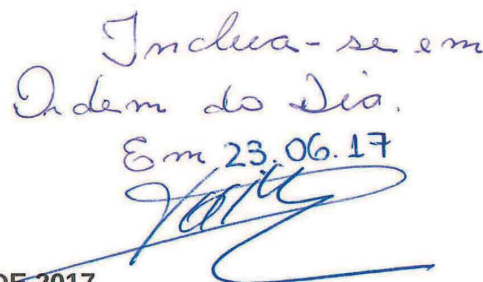 Inclua-se em
Ordem do Dia.
Em 23.06.17
DE 2017